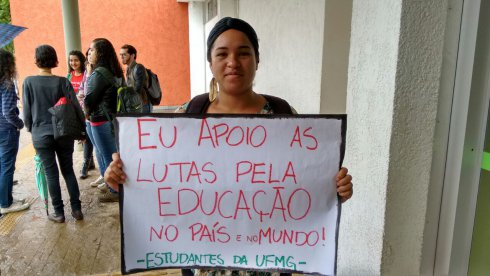 EU APOIO AS
LUTAS PELA
EDUCAÇÃO
NO PAÍS E NO MUNDO!
- ESTUDANTES DA UFMG -